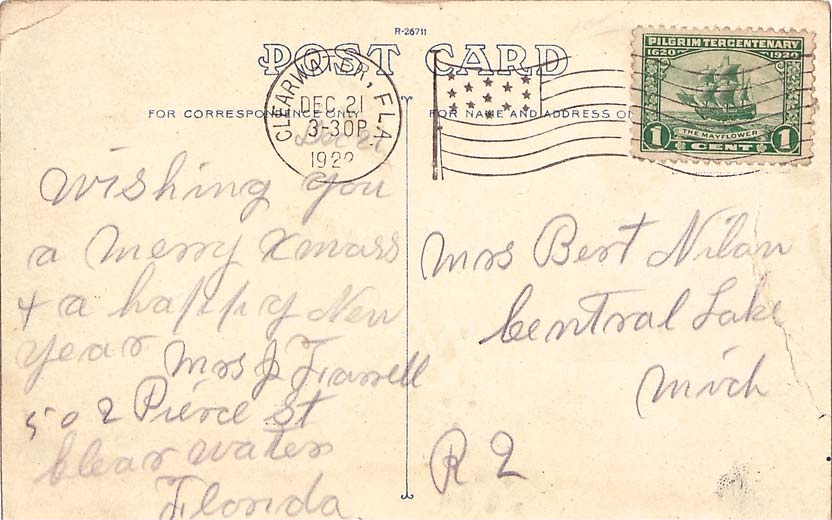 R-26711
POST CARD
CLEARWATER, FLA.
DEC. 21
3-30P
192
FOR CORRESPONDENCE ONLY
FOR NAME AND ADDRESS ON
PILGRIM TERCENTENARY
1620 1920
THE MAYFLOWER
1 CENT 1
Dec 21
Wishing you
a merry Xmass
+ a happy New
year
Mrs J Farrell
502 Pierce St
Clear water
Florida
Mrs Bert Nilan
Central Lake
Mich
R 2